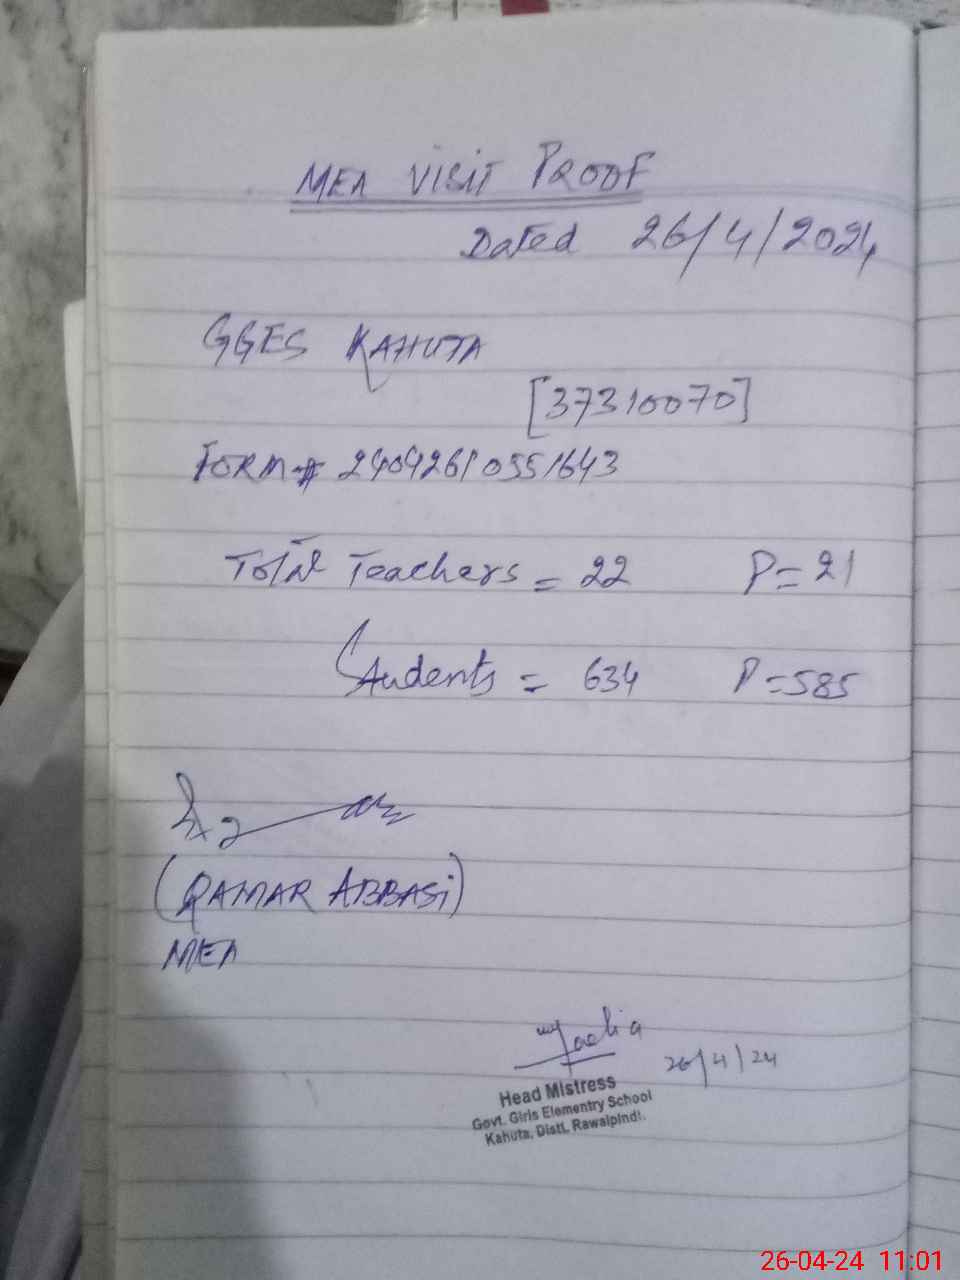 MEA VISIT PROOF
Dated 26/4/2024
GGES KAHUTA
[37310070]
FORM # 24042610551643
Total Teachers = 22 P=21
Students = 634 P=585
(QAMAR ABBASI)
MEA
26/4/24
Head Mistress
Govt. Girls Elementry School
Kahuta, Distt. Rawalpindi.
26-04-24 11:01